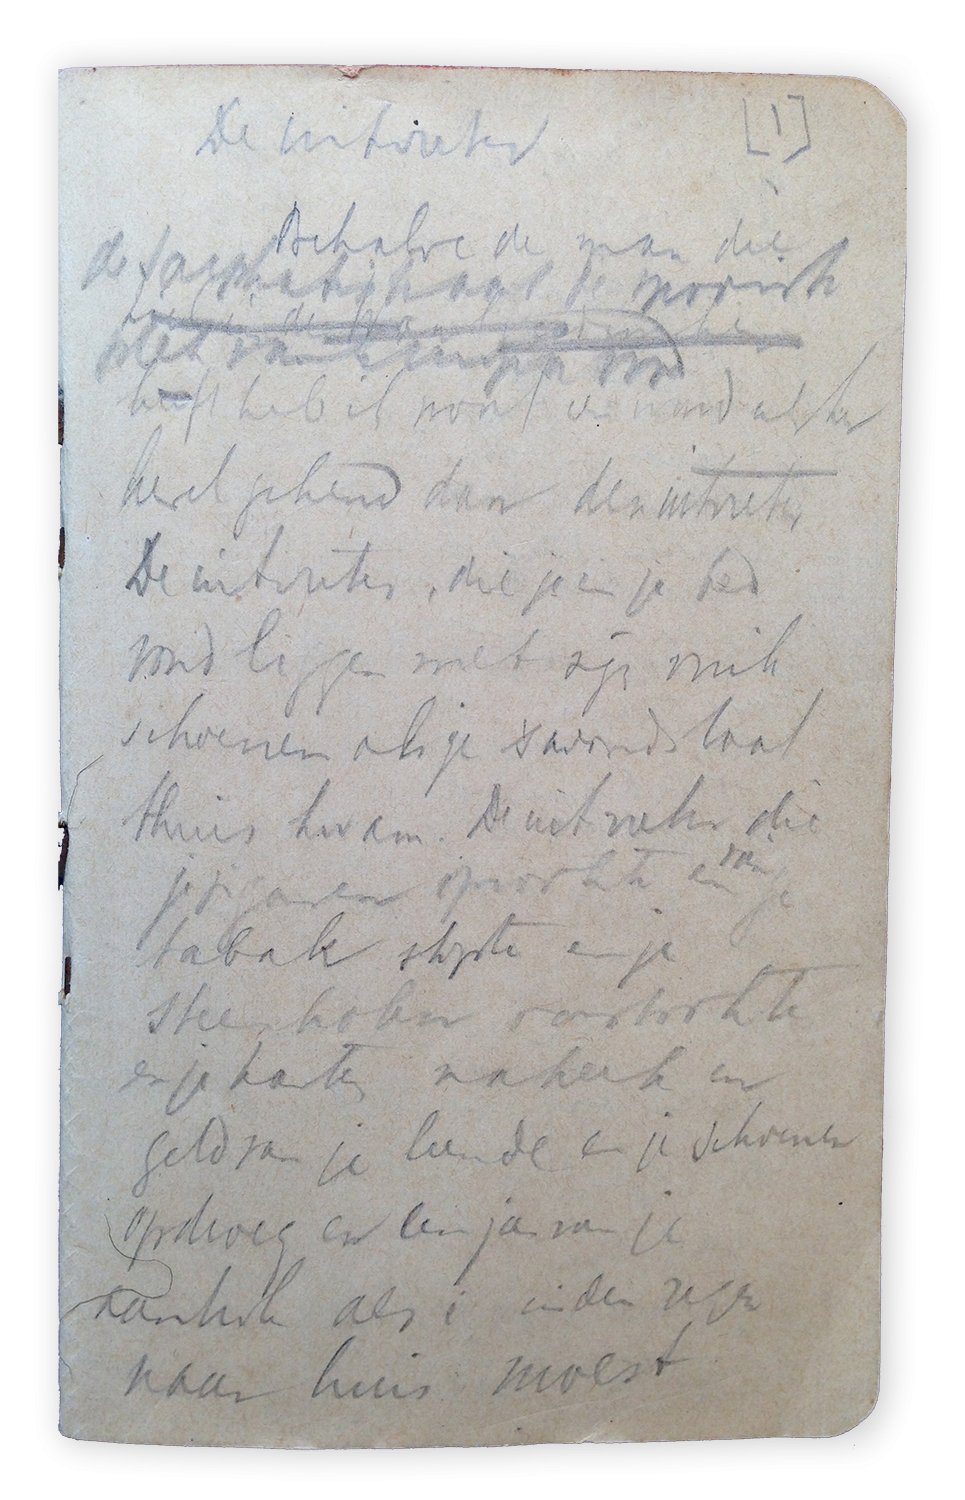 De uitvreter [1]
Behalve de man die
de Sarphatistraat de mooiste
plek van Europa vond
heeft heb ik nooit een wonderlijker
kerel gekend dan den uitvreter
De uitvreter, die je in je bed
vond liggen met zijn vuile
schoenen als je s avonds laat
thuis kwam. De uitvreter die
je sigaren oprookte en van je
tabak stopte en je
steenkolen verstookte
en je kasten nakeek en
geld van je leende en je schoenen
opdroeg en een jas van je
aantrok als i in den regen
naar huis moest